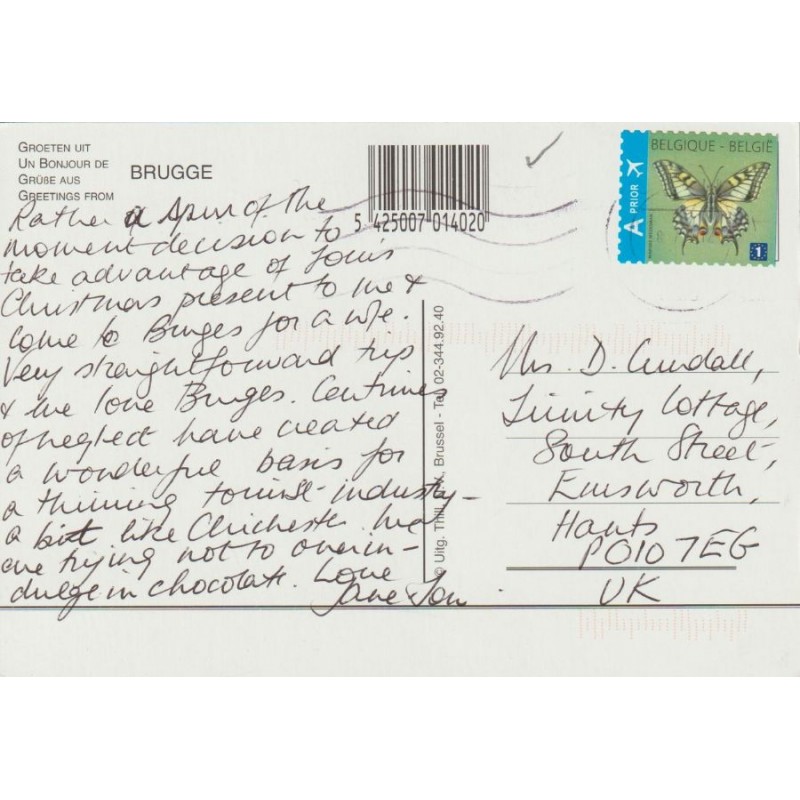 GROETEN UIT
UN BONJOUR DE
GRÜSSE AUS
GREETINGS FROM
BRUGGE
5 425007 014020
BELGIQUE - BELGIË
A PRIOR
1
Rather a spur of the
moment decision to
take advantage of Tom's
Christmas present to me &
come to Bruges for a w/e.
Very straightforward trip
& we love Bruges. Centuries
of neglect have created
a wonderful basis for
a thriving tourist industry –
a bit like Chichester. We
are trying not to overin-
dulge in chocolate. Love
Jane & Tom
© Uitg. Thill, Brussel - Tel. 02-344.92.40
Mrs. D. Cundall,
Trinity Cottage,
South Street,
Emsworth,
Hants
PO10 7EG
UK